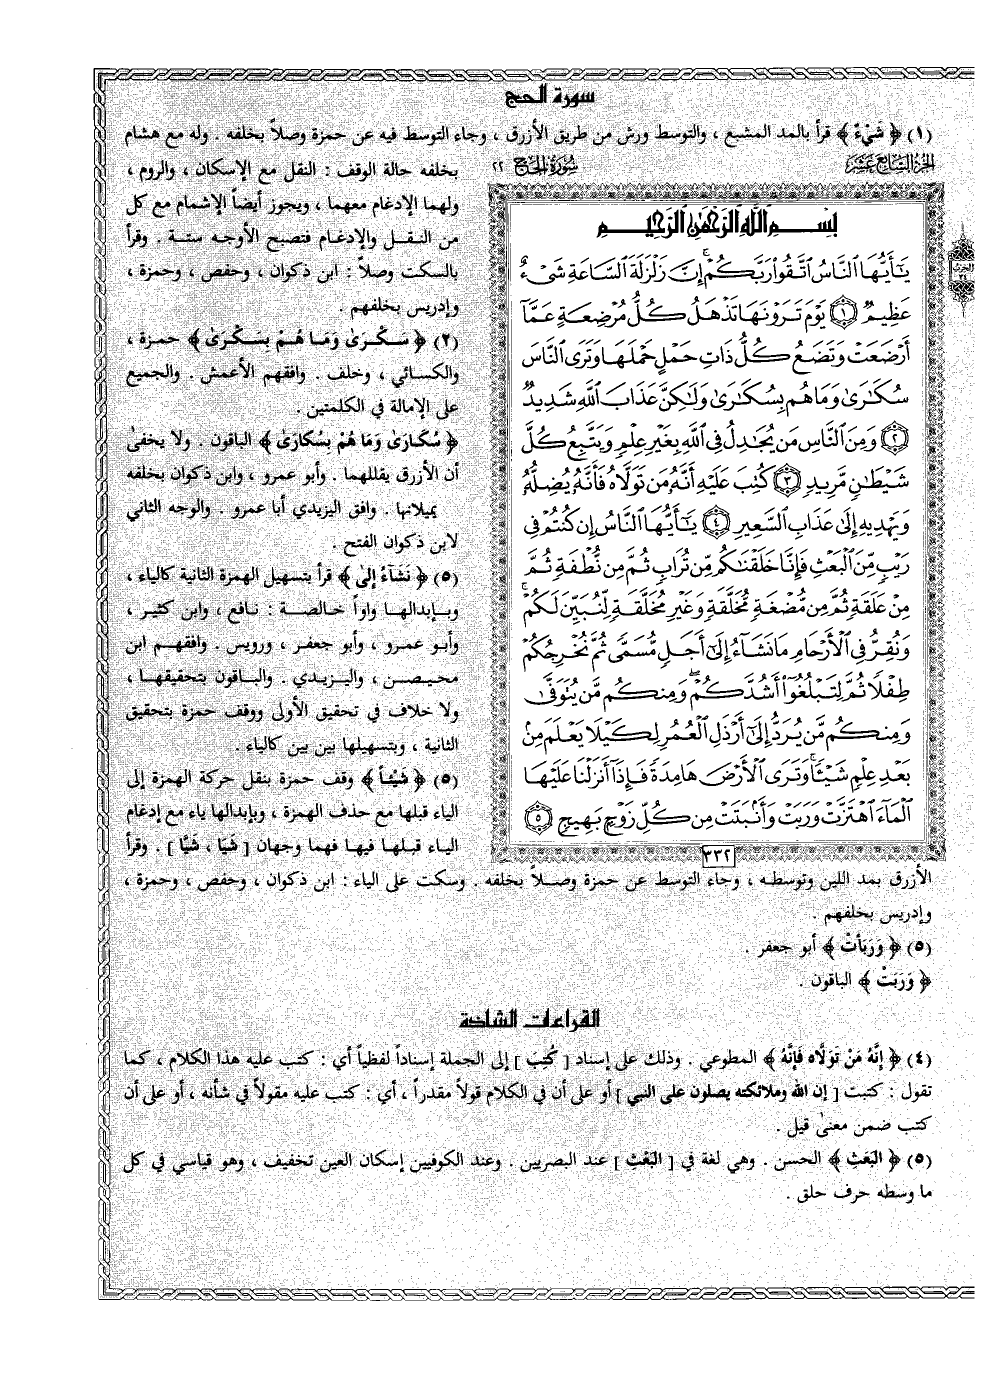 سورة الحج
(١) ﴿ شَيْءٌ ﴾ قرأ بالمد المشبع ، والتوسط ورش من طريق الأزرق ، وجاء التوسط فيه عن حمزة وصلاً بخلفه . وله مع هشام
بخلفه حالة الوقف : النقل مع الإسكان ، والروم ،
ولهما الإدغام معهما ، ويجوز أيضاً الإشمام مع كل
من النقل والإدغام فتصبح الأوجه ستة . وقرأ
بالسكت وصلاً : ابن ذكوان ، وحفص ، وحمزة ،
وإدريس بخلفهم .
(٢) ﴿ سَكْرَىٰ وَمَا هُمْ بِسَكْرَىٰ ﴾ حمزة ،
والكسائي ، وخلف . وافقهم الأعمش . والجميع
على الإمالة في الكلمتين .
﴿ سُكَارَىٰ وَمَا هُمْ بِسُكَارَىٰ ﴾ الباقون . ولا يخفىٰ
أن الأزرق يقللهما . وأبو عمرو ، وابن ذكوان بخلفه
يميلانها . وافق اليزيدي أبا عمرو . والوجه الثاني
لابن ذكوان الفتح .
(٥) ﴿ نَشَآءُ إِلىٰ ﴾ قرأ بتسهيل الهمزة الثانية كالياء ،
وبإبدالها واواً خالصة : نافع ، وابن كثير ،
وأبو عمرو ، وأبو جعفر ، ورويس . وافقهم ابن
محيصن ، واليزيدي . والباقون بتحقيقها ،
ولا خلاف في تحقيق الأولى ووقف حمزة بتحقيق
الثانية ، وبتسهيلها بين بين كالياء .
(٥) ﴿ شَيْئاً ﴾ وقف حمزة بنقل حركة الهمزة إلى
الياء قبلها مع حذف الهمزة ، وبإبدالها ياء مع إدغام
الياء قبلها فيها فهما وجهان [ شَيَا ، شَيًّا ] . وقرأ
الجزء السابع عشر
سورة الحج ٢٢
بِسْمِ اللَّهِ الرَّحْمَٰنِ الرَّحِيمِ
يَٰٓأَيُّهَا النَّاسُ اتَّقُوا رَبَّكُمْ ۚ إِنَّ زَلْزَلَةَ السَّاعَةِ شَيْءٌ
عَظِيمٌ ١ يَوْمَ تَرَوْنَهَا تَذْهَلُ كُلُّ مُرْضِعَةٍ عَمَّآ
أَرْضَعَتْ وَتَضَعُ كُلُّ ذَاتِ حَمْلٍ حَمْلَهَا وَتَرَى النَّاسَ
سُكَٰرَىٰ وَمَا هُم بِسُكَٰرَىٰ وَلَٰكِنَّ عَذَابَ اللَّهِ شَدِيدٌ
٢ وَمِنَ النَّاسِ مَن يُجَٰدِلُ فِي اللَّهِ بِغَيْرِ عِلْمٍ وَيَتَّبِعُ كُلَّ
شَيْطَٰنٍ مَّرِيدٍ ٣ كُتِبَ عَلَيْهِ أَنَّهُ مَن تَوَلَّاهُ فَأَنَّهُ يُضِلُّهُ
وَيَهْدِيهِ إِلَىٰ عَذَابِ السَّعِيرِ ٤ يَٰٓأَيُّهَا النَّاسُ إِن كُنتُمْ فِي
رَيْبٍ مِّنَ الْبَعْثِ فَإِنَّا خَلَقْنَٰكُم مِّن تُرَابٍ ثُمَّ مِن نُّطْفَةٍ ثُمَّ
مِنْ عَلَقَةٍ ثُمَّ مِن مُّضْغَةٍ مُّخَلَّقَةٍ وَغَيْرِ مُخَلَّقَةٍ لِّنُبَيِّنَ لَكُمْ ۚ
وَنُقِرُّ فِي الْأَرْحَامِ مَا نَشَآءُ إِلَىٰٓ أَجَلٍ مُّسَمًّى ثُمَّ نُخْرِجُكُمْ
طِفْلًا ثُمَّ لِتَبْلُغُوٓا أَشُدَّكُمْ ۖ وَمِنكُم مَّن يُتَوَفَّىٰ
وَمِنكُم مَّن يُرَدُّ إِلَىٰٓ أَرْذَلِ الْعُمُرِ لِكَيْلَا يَعْلَمَ مِنۢ
بَعْدِ عِلْمٍ شَيْئًا ۚ وَتَرَى الْأَرْضَ هَامِدَةً فَإِذَآ أَنزَلْنَا عَلَيْهَا
الْمَآءَ اهْتَزَّتْ وَرَبَتْ وَأَنۢبَتَتْ مِن كُلِّ زَوْجٍۭ بَهِيجٍ ٥
٣٣٢
الأزرق بمد اللين وتوسطه ، وجاء التوسط عن حمزة وصلاً بخلفه . وسكت على الياء : ابن ذكوان ، وحفص ، وحمزة ،
وإدريس بخلفهم .
(٥) ﴿ وَرَبَأَتْ ﴾ أبو جعفر .
﴿ وَرَبَتْ ﴾ الباقون .
القراءات الشاذة
(٤) ﴿ إِنَّهُ مَنْ تَوَلَّاه فَإِنَّهُ ﴾ المطوعي . وذلك على إسناد [ كُتِبَ ] إلى الجملة إسناداً لفظياً أي : كتب عليه هذا الكلام ، كما
تقول : كتبت [ إن الله وملائكته يصلون على النبي ] أو على أن في الكلام قولاً مقدراً ، أي : كتب عليه مقولاً في شأنه ، أو على أن
كتب ضمن معنىٰ قيل .
(٥) ﴿ البَعَثِ ﴾ الحسن . وهي لغة في [ البَعْثِ ] عند البصريين . وعند الكوفيين إسكان العين تخفيف ، وهو قياسي في كل
ما وسطه حرف حلق .